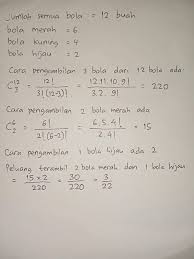 Jumlah semua bola = 12 buah
bola merah = 6
bola kuning = 4
bola hijau = 2
Cara pengambilan 3 bola dari 12 bola ada
C₃¹² = 12! / 3!(12-3)! = 12.11.10.9! / 3.2.9! = 220
Cara pengambilan 2 bola merah ada
C₂⁶ = 6! / 2!(6-2)! = 6.5.4! / 2.4! = 15
Cara pengambilan 1 bola hijau ada 2
Peluang terambil 2 bola merah dan 1 bola hijau
= 15 x 2 / 220 = 30 / 220 = 3 / 22